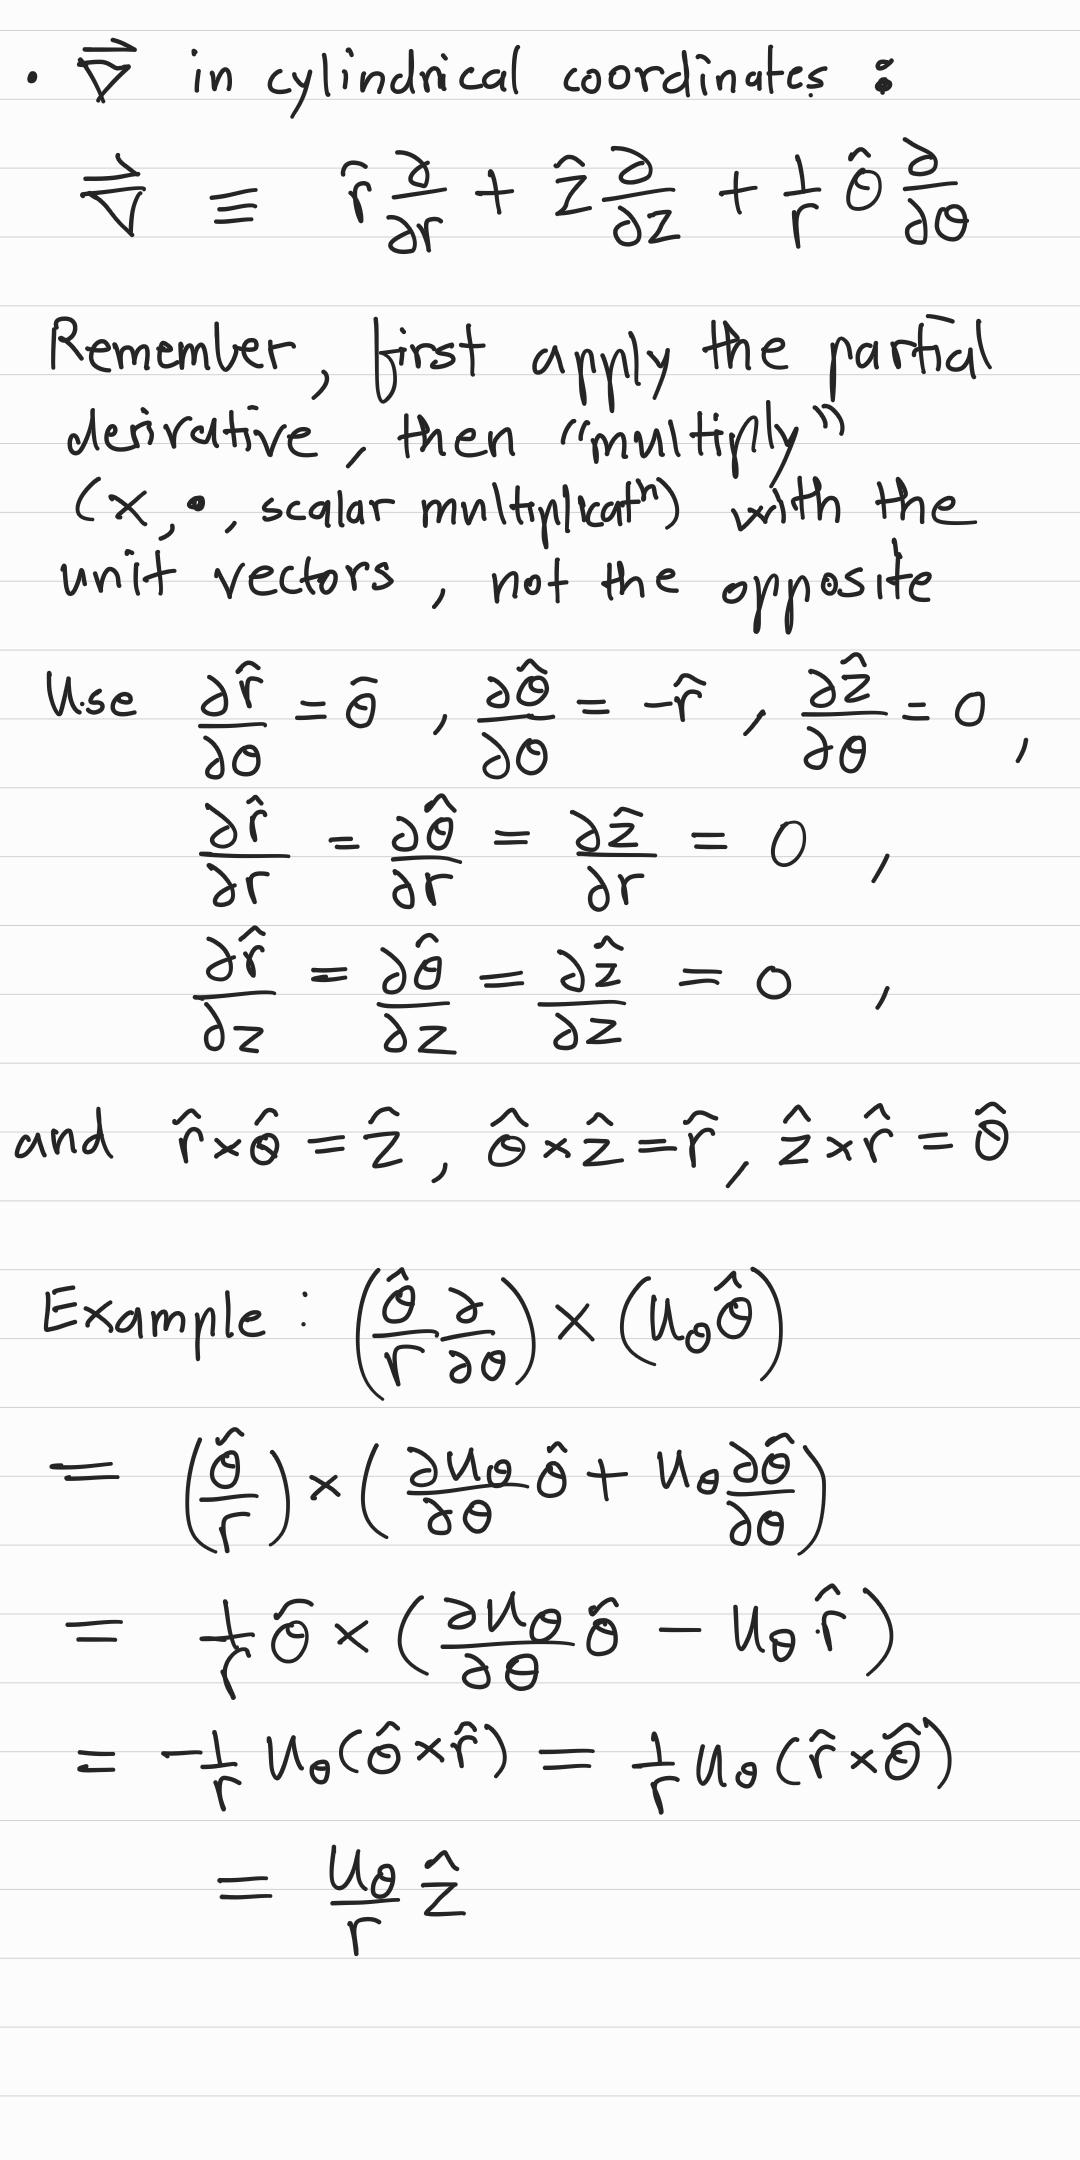 • ∇⃗ in cylindrical coordinates :
∇⃗ ≡ r̂ ∂/∂r + ẑ ∂/∂z + 1/r θ̂ ∂/∂θ
Remember, first apply the partial
derivative, then "multiply"
(×, •, scalar multiplicatⁿ) with the
unit vectors, not the opposite
Use ∂r̂/∂θ = θ̂ , ∂θ̂/∂θ = -r̂ , ∂ẑ/∂θ = 0 ,
∂r̂/∂r = ∂θ̂/∂r = ∂ẑ/∂r = 0 ,
∂r̂/∂z = ∂θ̂/∂z = ∂ẑ/∂z = 0 ,
and r̂×θ̂ = ẑ , θ̂×ẑ = r̂ , ẑ×r̂ = θ̂
Example : (θ̂/r ∂/∂θ) × (u_θ θ̂)
= (θ̂/r) × (∂u_θ/∂θ θ̂ + u_θ ∂θ̂/∂θ)
= 1/r θ̂ × (∂u_θ/∂θ θ̂ - u_θ r̂)
= -1/r u_θ(θ̂×r̂) = 1/r u_θ(r̂×θ̂)
= u_θ/r ẑ